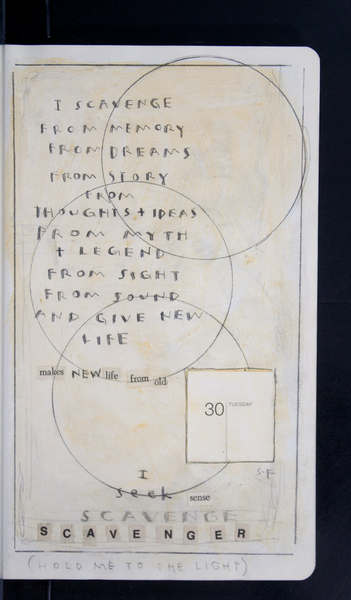 I SCAVENGE
FROM MEMORY
FROM DREAMS
FROM STORY
FROM
THOUGHTS + IDEAS
FROM MYTH
+ LEGEND
FROM SIGHT
FROM SOUND
AND GIVE NEW
LIFE
makes NEW life from old
30 TUESDAY
S.F
I
seek sense
SCAVENGE
SCAVENGER
(HOLD ME TO THE LIGHT)